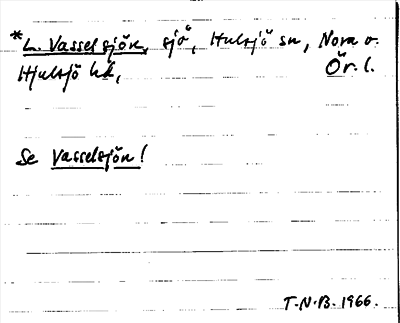 * L. Vasselsjön, sjö, Hulsjö sn, Nora o.
Hjulsjö hd, Ör. l.
Se Vasselsjön!
T.N.B. 1966.